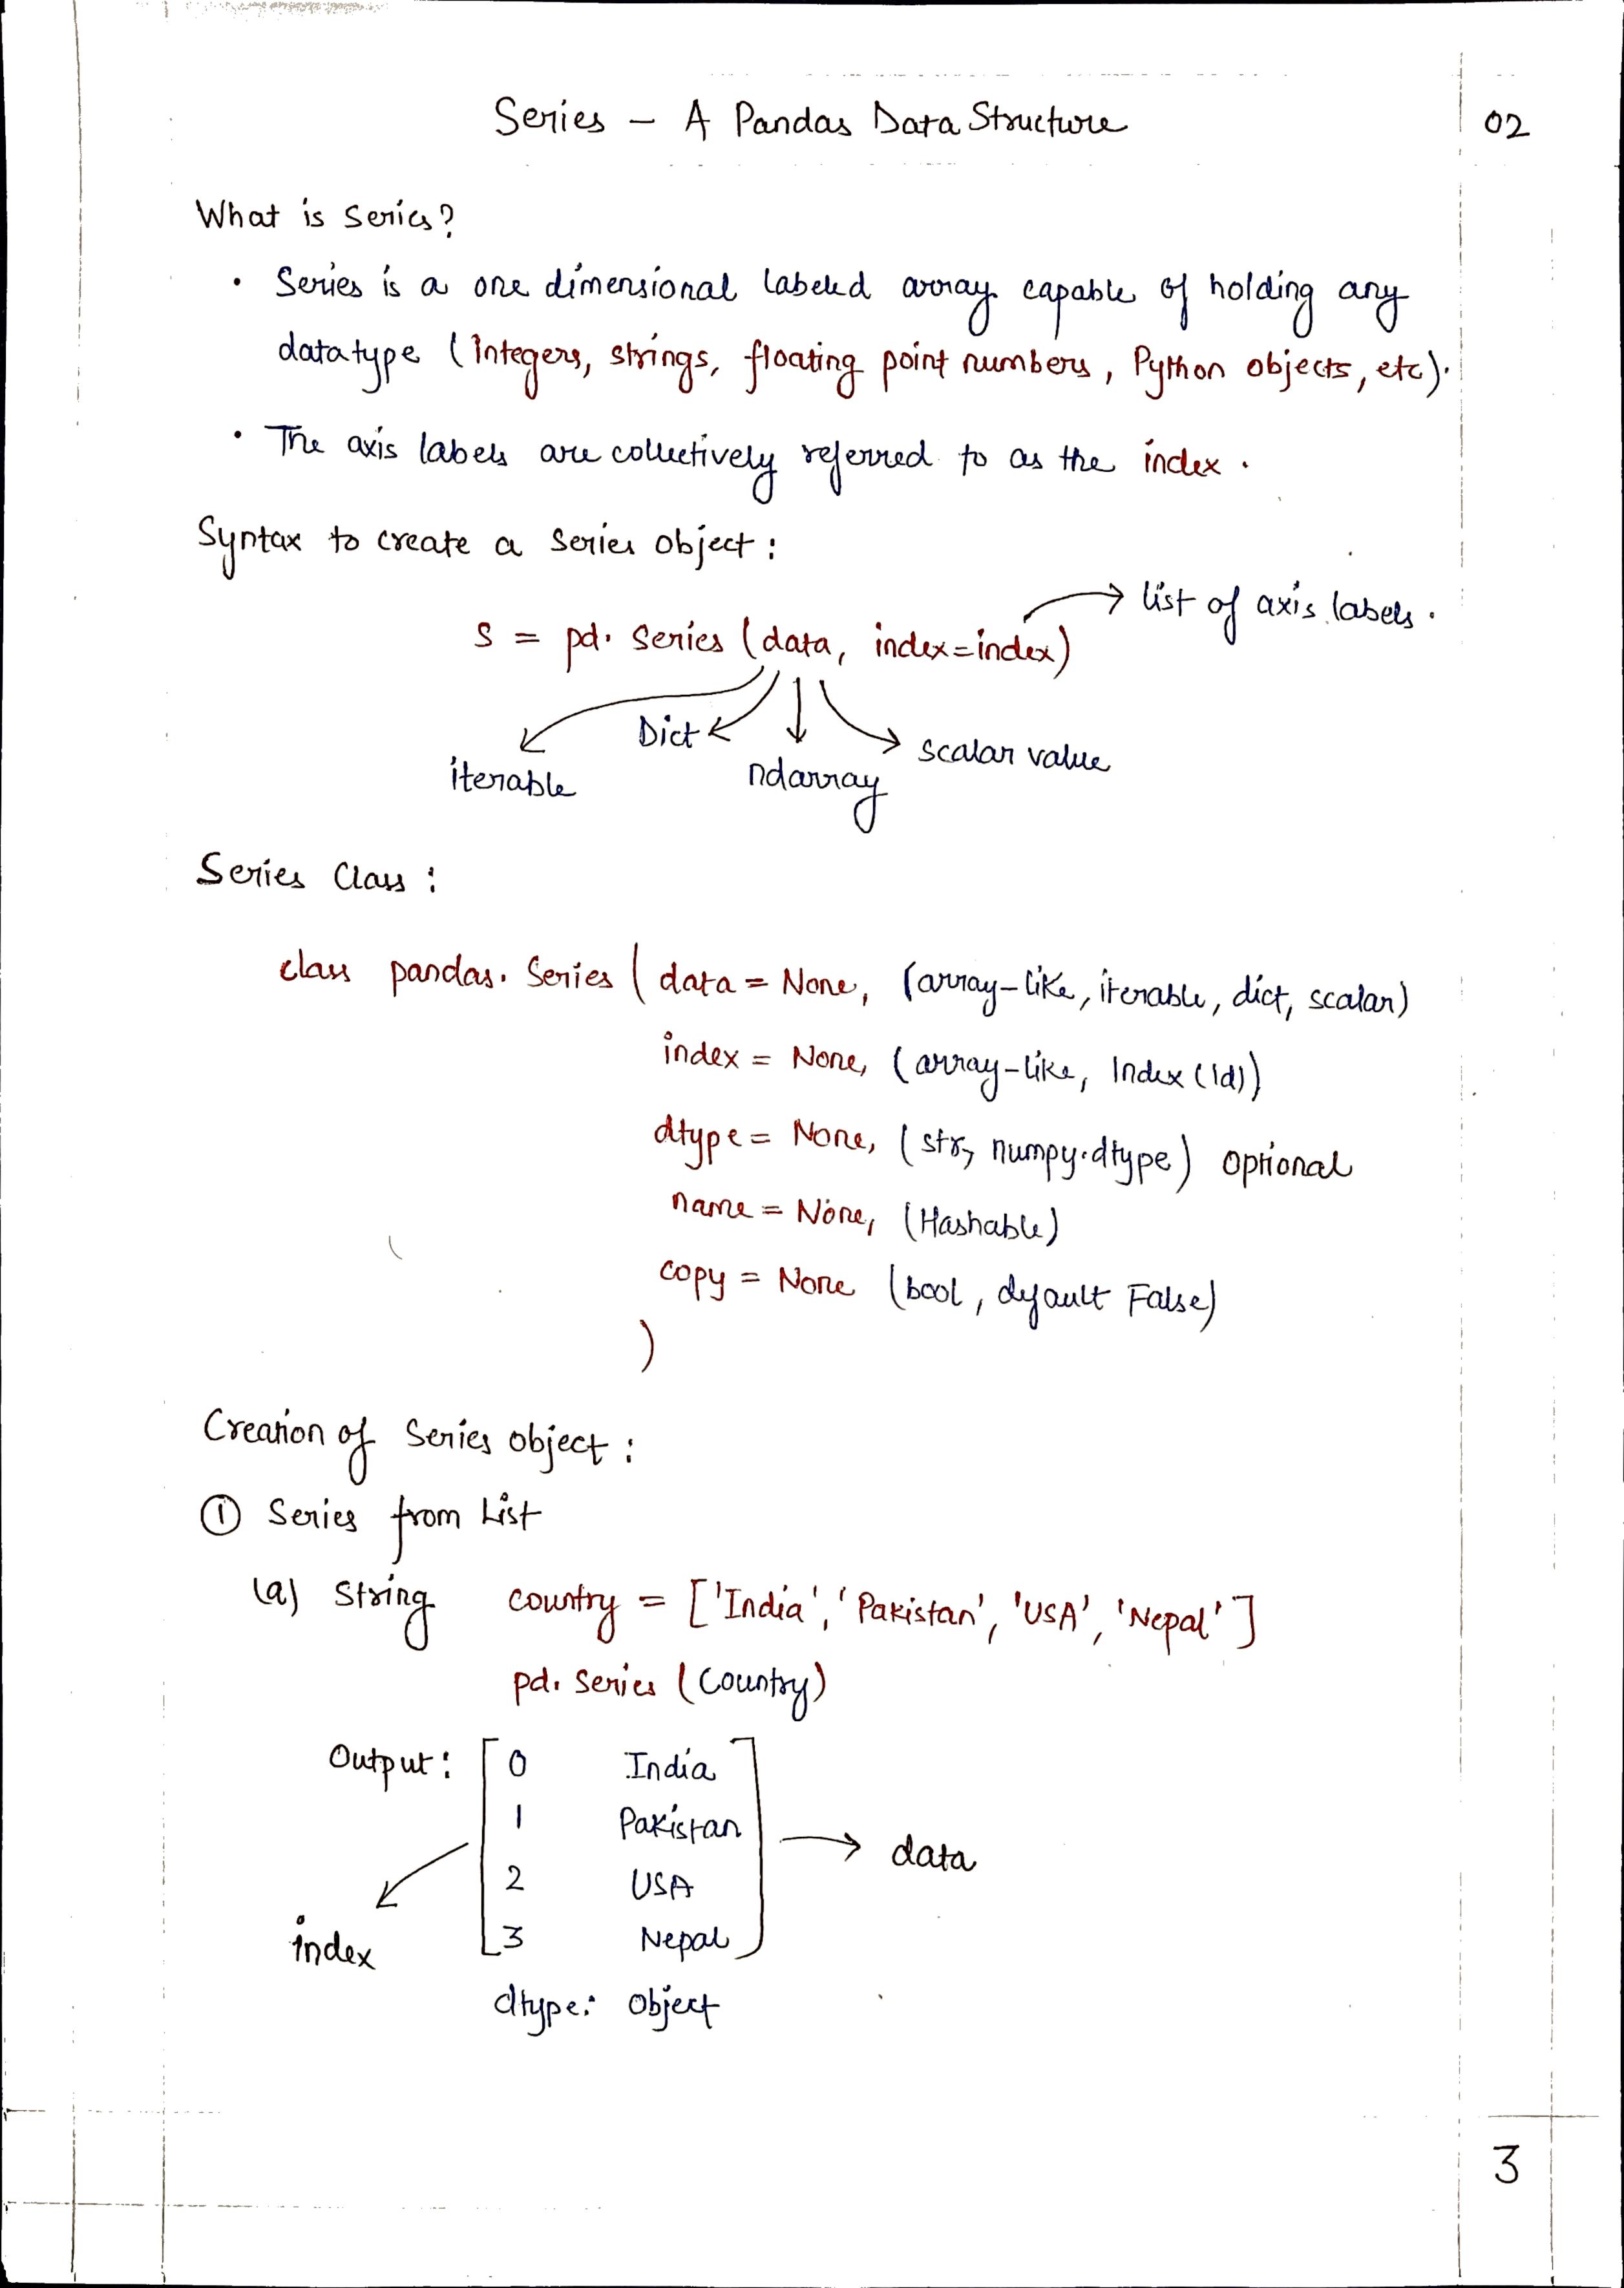 Series - A Pandas Data Structure
02
What is Series?
• Series is a one dimensional labeled array capable of holding any
datatype (Integers, strings, floating point numbers, Python objects, etc).
• The axis labels are collectively referred to as the index.
Syntax to create a Series Object:
list of axis labels.
S = pd. Series (data, index=index)
Dict
scalar value
iterable
ndarray
Series Class:
class pandas. Series ( data = None, (array-like, iterable, dict, scalar)
index = None, (array-like, Index (1d))
dtype = None, (str, numpy.dtype) optional
name = None, (Hashable)
copy = None (bool, default False)
)
Creation of Series object:
① Series from List
(a) String country = ['India', 'Pakistan', 'USA', 'Nepal']
pd. Series (Country)
Output: 0 India
1 Pakistan
data
2 USA
3 Nepal
index
dtype: Object
3